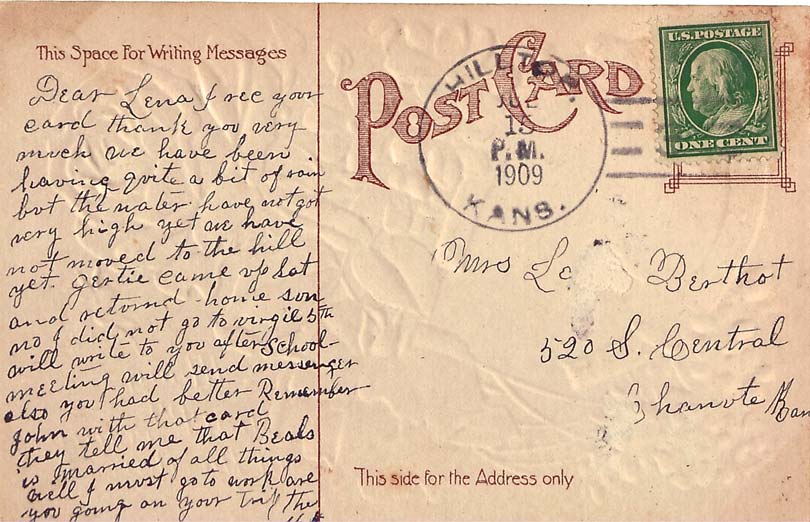 This Space For Writing Messages
Dear Lena I rec your
card thank you very
much we have been
having quite a bit of rain
but the water have not got
very high yet we have
not moved to the hill
yet. Gertie came up Sat
and returnd home sun
no I did not go to virgil 5th
will write to you after School
meeting will send messenger
also you had better Remember
John with that card
they tell me that Beals
is married of all things
well I must go to work are
you going on your trip the
POST CARD
HILLTOP
13
P.M.
1909
KANS.
U.S. POSTAGE
ONE CENT
Mrs Le Berthot
520 S. Central
Chanute Kan
This side for the Address only